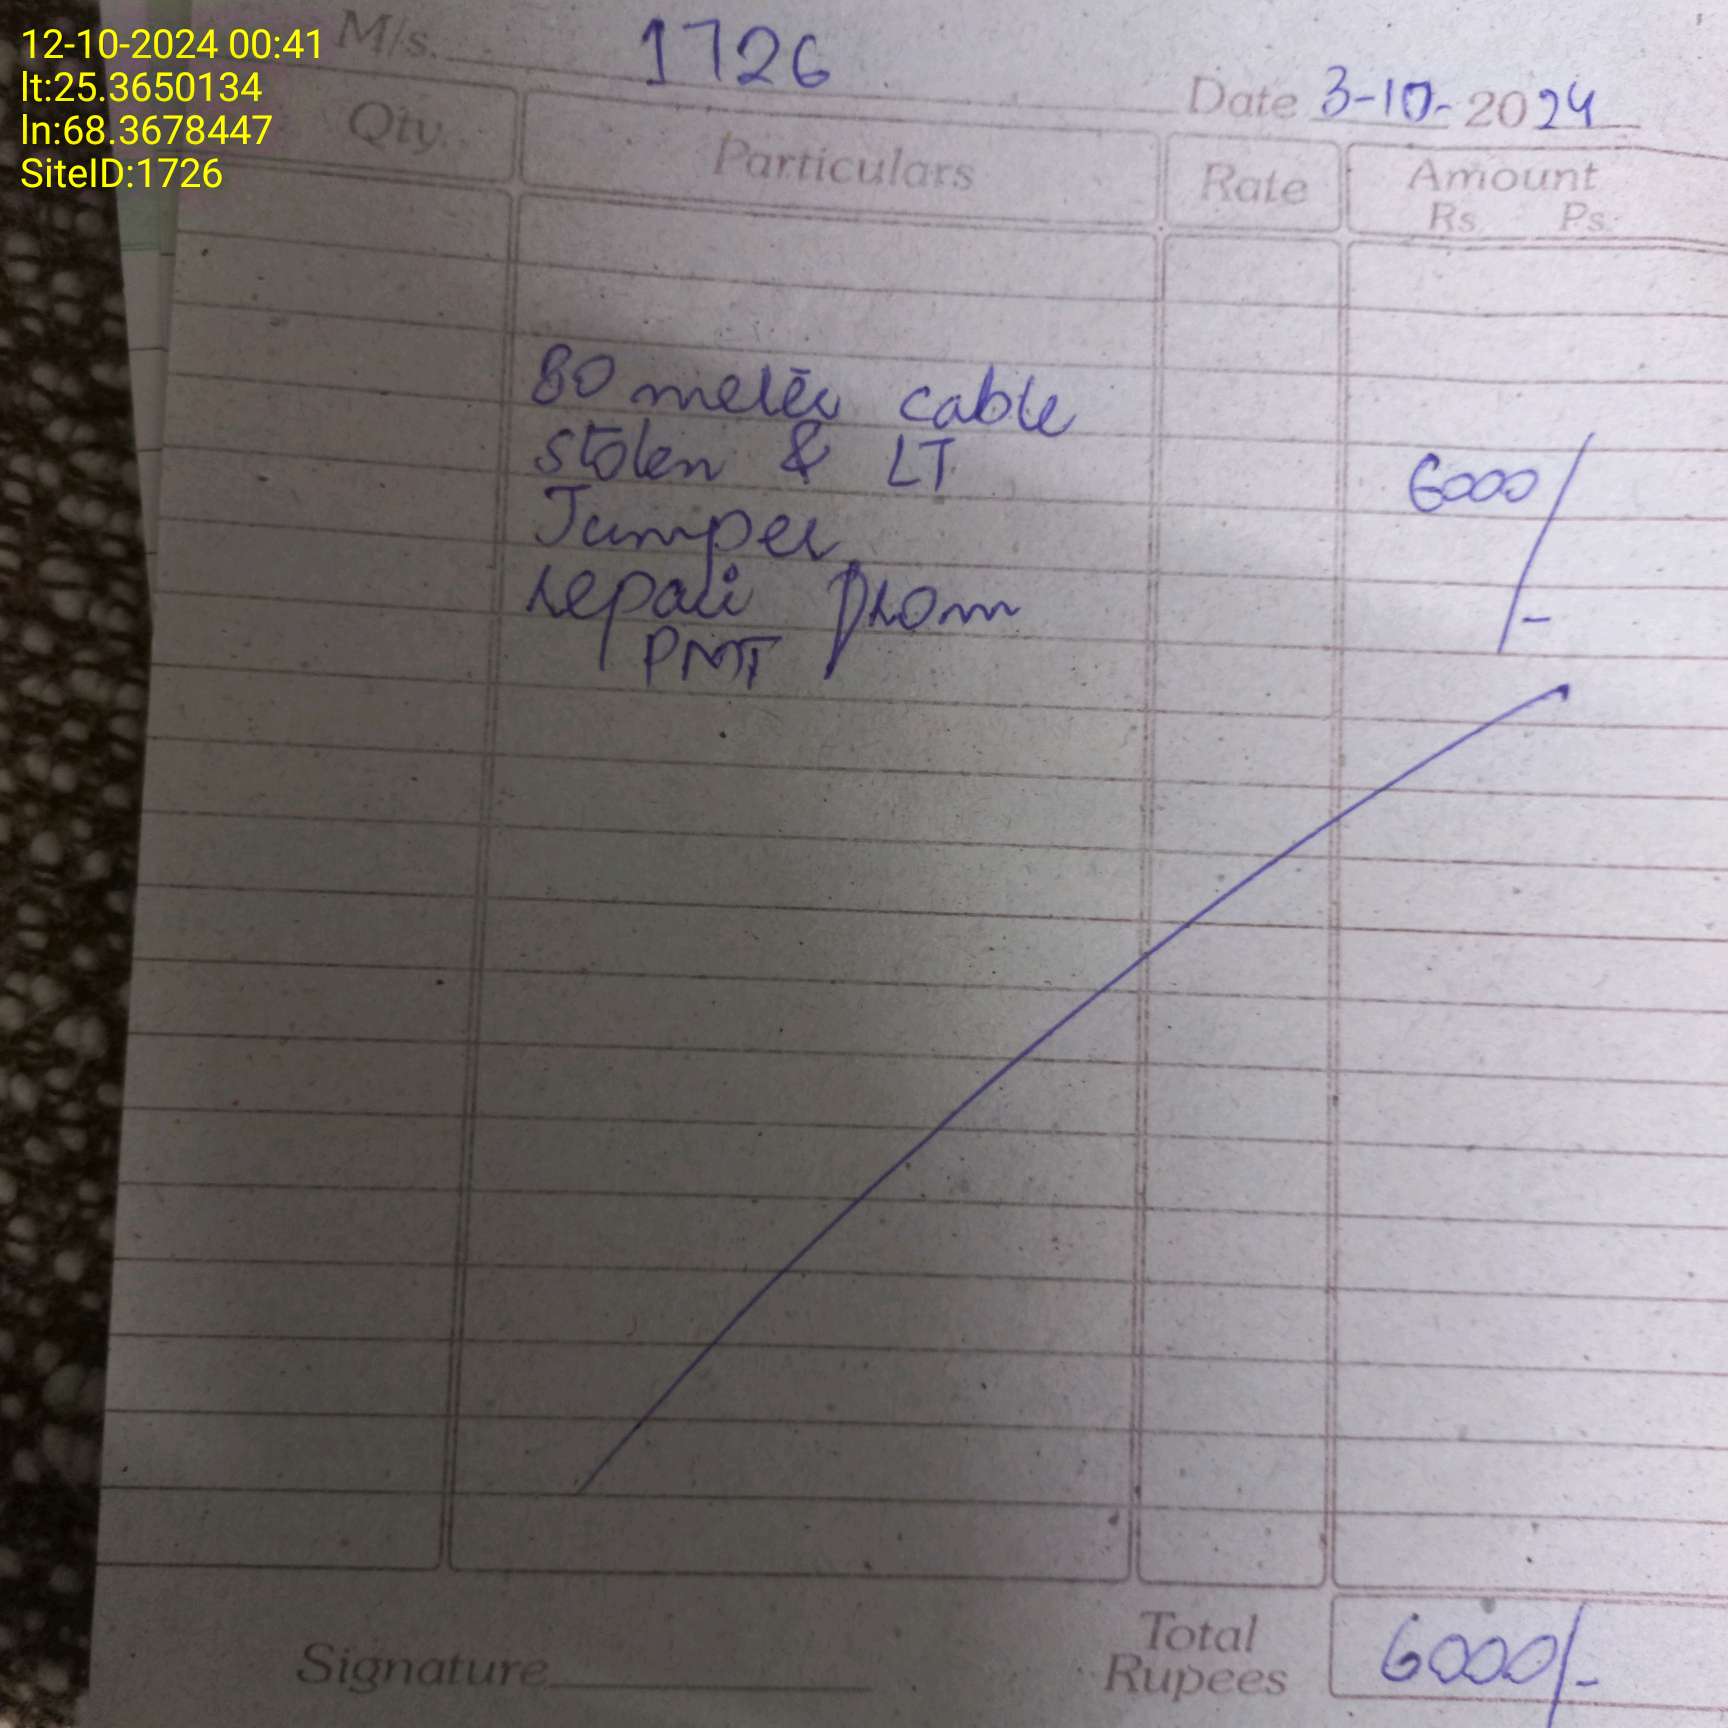 12-10-2024 00:41
lt:25.3650134
ln:68.3678447
SiteID:1726
M/s. 1726
Date 3-10-2024
Qty. Particulars Rate Amount
Rs Ps.
80 meter cable
stolen & LT
Jumper
repair from
PMT
6000/-
Total
Rupees 6000/-
Signature